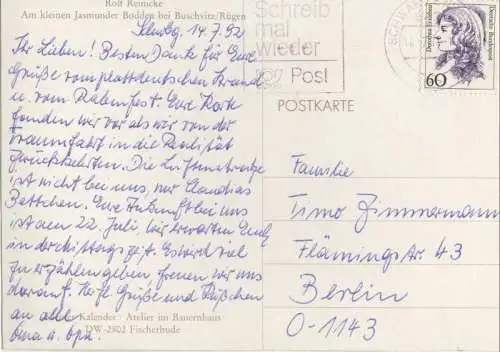 Rolf Reinicke
Am kleinen Jasmunder Bodden bei Buschvitz/Rügen
14.7.92
Ihr Lieben! Besten Dank für Eure
Grüße vom plattdeutschen Strand
u. vom Rabenfest. Eure Karte
fanden wir vor als wir von der
Traumfahrt in die Realität
zurückkehrten. Die Luftmatratze
ist nicht bei uns, nur Claudias
Bettchen. Eure Ankunft bei uns
ist am 22. Juli, wir erwarten Euch
in der Mittagszeit. Es wird viel
zu erzählen geben freuen wir uns
darauf. Herzl. Grüße und Küßchen
an alle
Kalender · Atelier im Bauernhaus
Oma u. Opa.
DW-2802 Fischerhude
Schreib
mal
wieder
Post
Dorothea Erxleben
Deutsche Bundespost
60
POSTKARTE
Familie
Timo Zimmermann
Flämingstr. 43
Berlin
O-1143